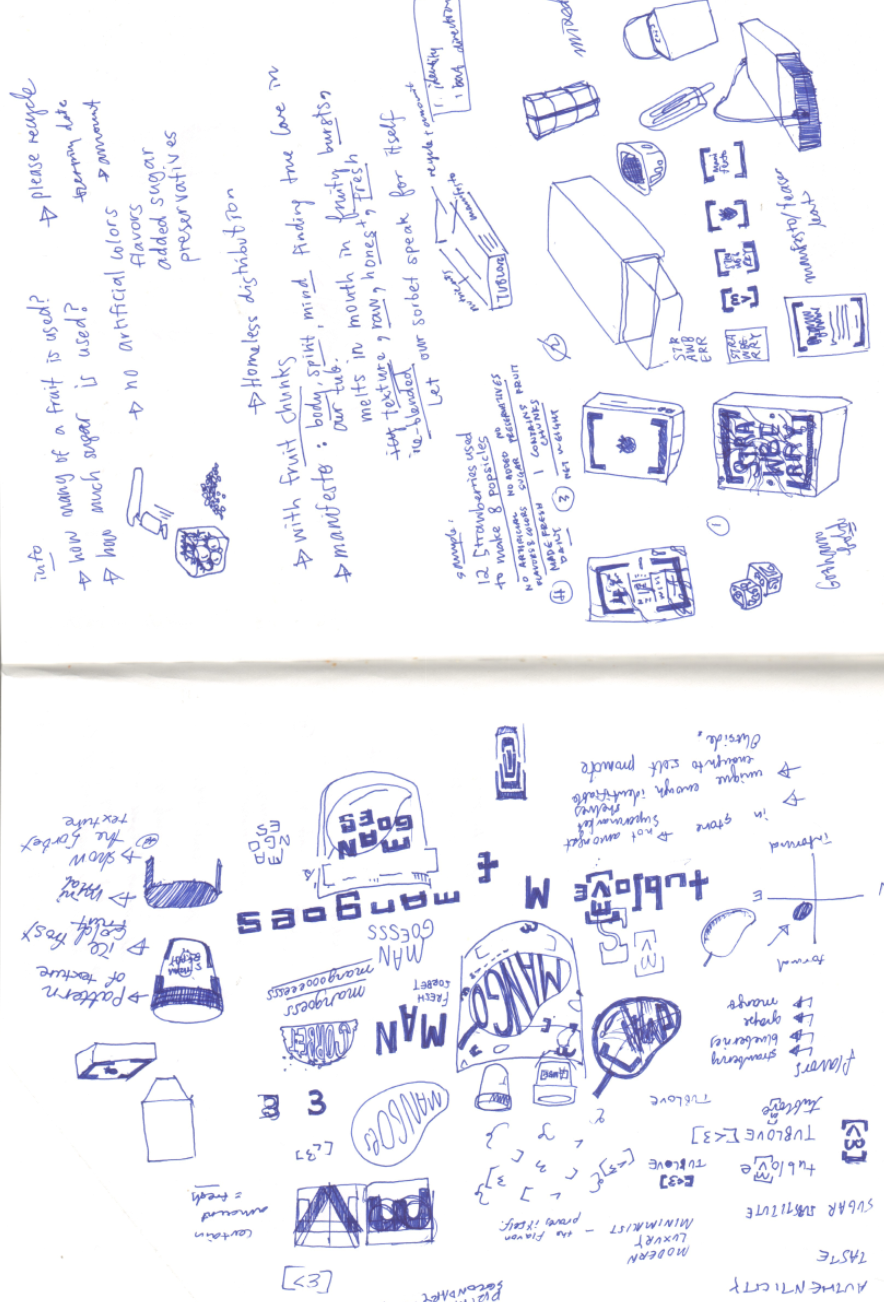 info
→ how many of a fruit is used?
→ how much sugar is used?
→ please recycle
date
→ amount
→ no artificial colors
flavors
added sugar
preservatives
→ Homeless distribution
→ with fruit chunks
→ manifesto : body, spirit, mind finding true love in
our tub.
melts in mouth in fruity bursts,
texture, raw, honest, fresh
ice-blended
Let our sorbet speak for itself
recycle + amount
manifesto
TUBLOVE
1. identity
1 bag direction
mixed
sample:
12 strawberries used
to make 8 popsicles
NO ARTIFICIAL
FLAVORS & COLORS
NO ADDED
SUGAR
NO
PRESERVATIVES
MADE FRESH
DAILY
1 CONTAINS FRUIT
CHUNKS
NET WEIGHT
4
3
2
1
STR
AWB
ERR
STRA
WBE
RRY
Mani
festo
manifesto/teaser
STRA
WBE
RRY
Gotham
→ pattern
of texture
→ ice
cold frost
→ mini
→ show
the sorbet
texture
MAN
GOES
mangoes
MAN
GOESSS
mangoess
mangooeeess
SORBET
FRESH
SORBET
MAN
MANGO
MANGOES
tublove
M
[<3]
in store
→ not amongst
supermarket
shelves
→ unique enough identifiable
→ enough to self promote
outside.
informal
formal
E
Flavors
→ strawberry
→ blueberries
→ grape
→ mango
TUBLOVE
tublove
TUBLOVE [<3]
tublove
TUBLOVE
[<3]
[<3]
3
certain
amount
= fresh.
MODERN
LUXURY
MINIMALIST
– the flavor
proves itself.
SUGAR SUBSTITUTE
TASTE
AUTHENTICITY
SECONDARY
[<3]